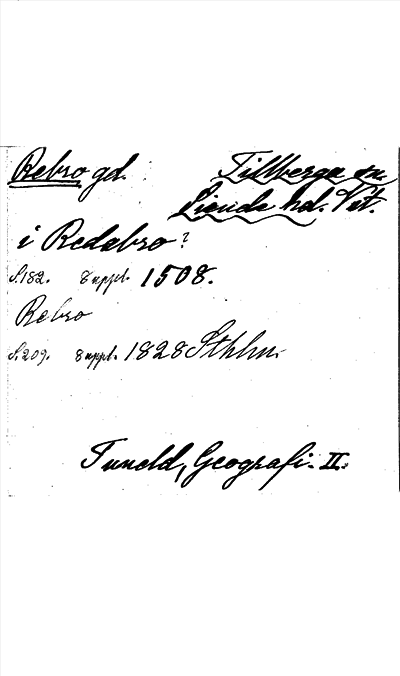 Rebro gd. Tillberga sn.
Siende hd. Vst.
i Redabro?
S. 182. Suppl. 1508.
Rebro
S. 209. Suppl. 1828 Sthlm.
Tuneld, Geografi. II.